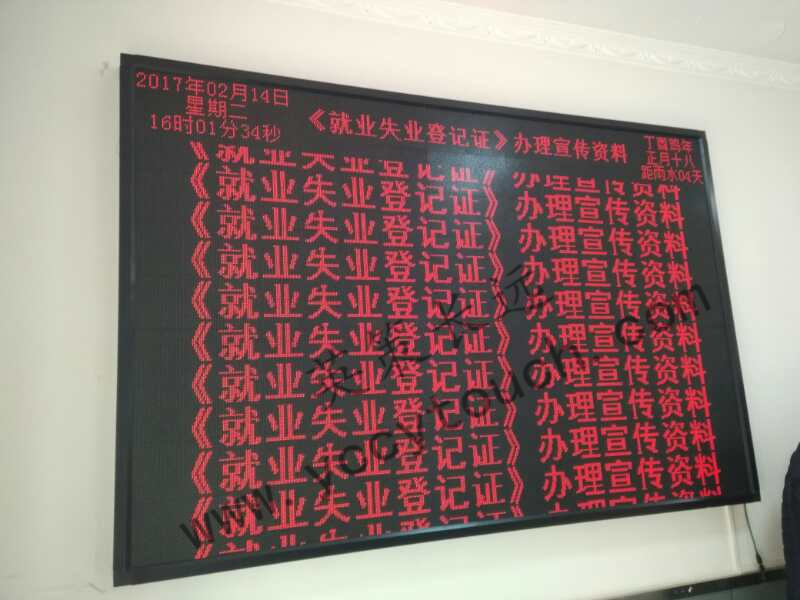 2017年02月14日
星期二
16时01分34秒
《就业失业登记证》办理宣传资料
丁酉鸡年
正月十八
距雨水04天
《就业失业登记证》办理宣传资料
《就业失业登记证》办理宣传资料
《就业失业登记证》办理宣传资料
《就业失业登记证》办理宣传资料
《就业失业登记证》办理宣传资料
《就业失业登记证》办理宣传资料
《就业失业登记证》办理宣传资料
《就业失业登记证》办理宣传资料
《就业失业登记证》办理宣传资料
《就业失业登记证》办理宣传资料
www.yocytouch.com